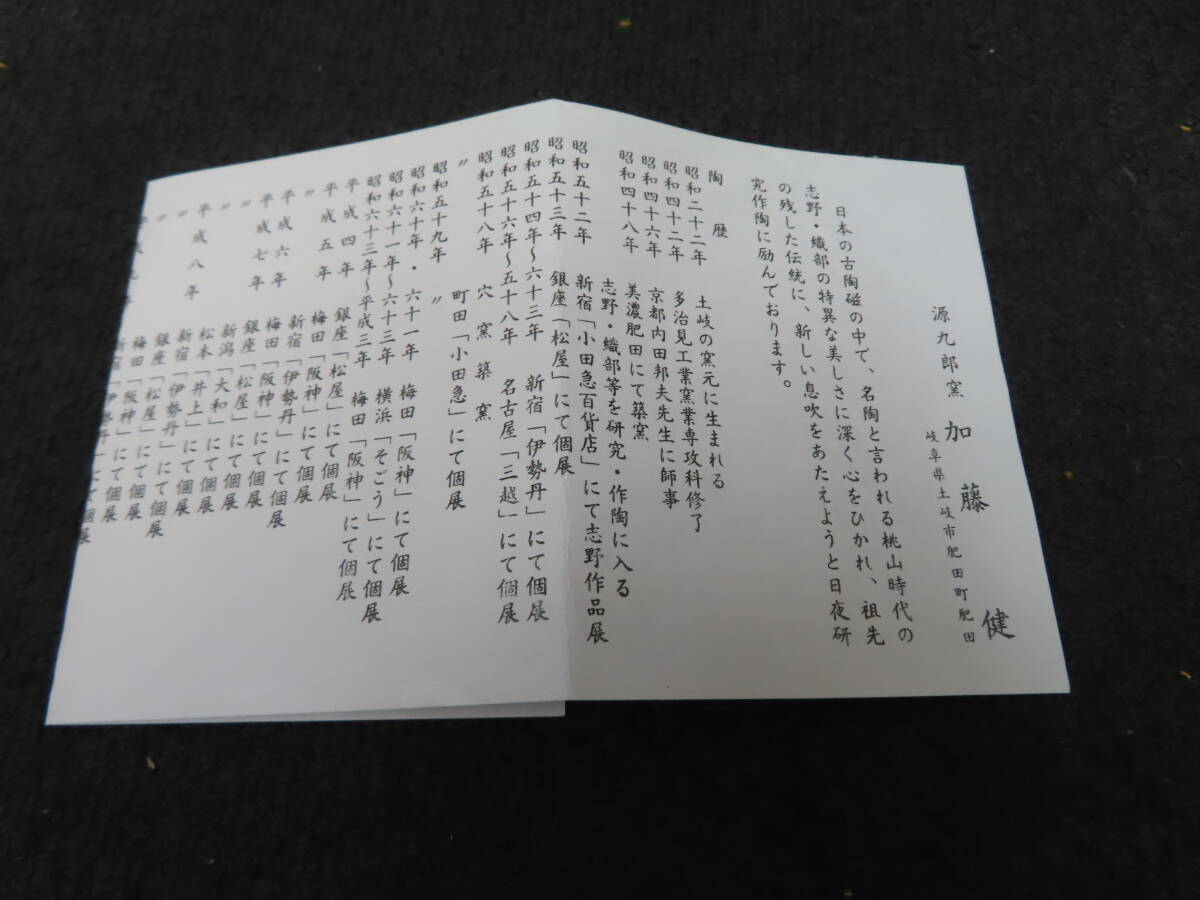 源九郎窯 加藤 健
岐阜県土岐市肥田町肥田
日本の古陶磁の中で、名陶と言われる桃山時代の
志野・織部の特異な美しさに深く心をひかれ、祖先
の残した伝統に、新しい息吹をあたえようと日夜研
究作陶に励んでおります。
陶 歴
昭和二十二年 土岐の窯元に生まれる
昭和四十二年 多治見工業窯業専攻科修了
昭和四十六年 京都内田邦夫先生に師事
昭和四十八年 美濃肥田にて築窯
志野・織部等を研究・作陶に入る
昭和五十二年 新宿「小田急百貨店」にて志野作品展
昭和五十三年 銀座「松屋」にて個展
昭和五十四年〜六十三年 新宿「伊勢丹」にて個展
昭和五十六年〜五十八年 名古屋「三越」にて個展
昭和五十八年 穴窯築窯
〃 町田「小田急」にて個展
昭和五十九年 〃
昭和六十年・六十一年 梅田「阪神」にて個展
昭和六十一年〜六十三年 横浜「そごう」にて個展
昭和六十三年〜平成三年 梅田「阪神」にて個展
平成四年 銀座「松屋」にて個展
平成五年 梅田「阪神」にて個展
〃 新宿「伊勢丹」にて個展
平成六年 梅田「阪神」にて個展
平成七年 銀座「松屋」にて個展
〃 新潟「大和」にて個展
〃 松本「井上」にて個展
平成八年 新宿「伊勢丹」にて個展
〃 銀座「松屋」にて個展
〃 梅田「阪神」にて個展
新宿「伊勢丹」にて個展